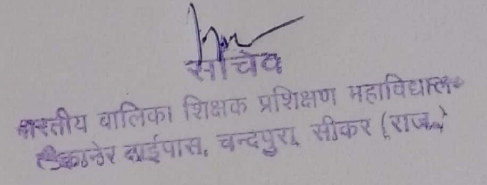 सचिव
भारतीय बालिका शिक्षक प्रशिक्षण महाविद्यालय
बीकानेर बाईपास, चन्दपुरा, सीकर (राज.)